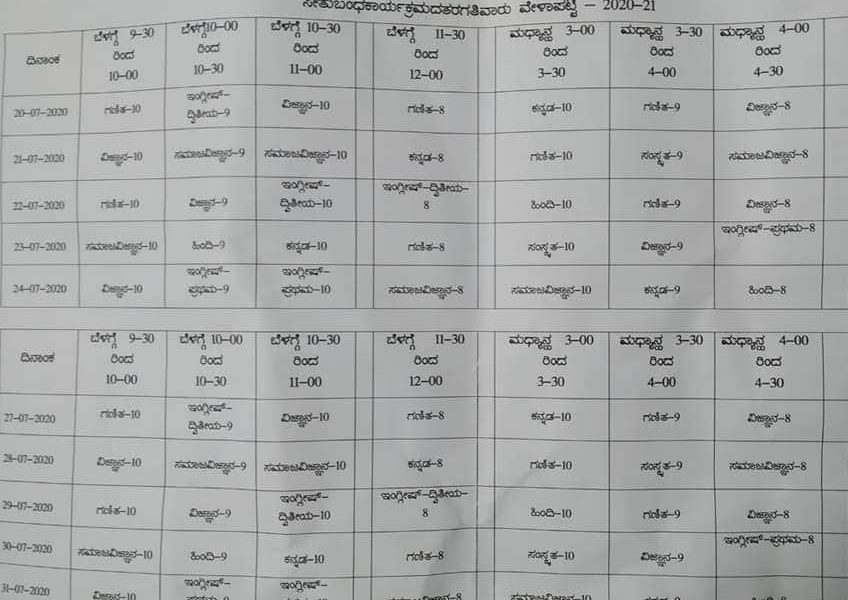 ಸೇತುಬಂಧಕಾರ್ಯಕ್ರಮದತರಗತಿವಾರು ವೇಳಾಪಟ್ಟಿ – 2020-21
ದಿನಾಂಕ ಬೆಳಗ್ಗೆ 9-30 ರಿಂದ 10-00 ಬೆಳಗ್ಗೆ10-00 ರಿಂದ 10-30 ಬೆಳಗ್ಗೆ 10-30 ರಿಂದ 11-00 ಬೆಳಗ್ಗೆ 11-30 ರಿಂದ 12-00 ಮಧ್ಯಾನ್ಹ 3-00 ರಿಂದ 3-30 ಮಧ್ಯಾನ್ಹ 3-30 ರಿಂದ 4-00 ಮಧ್ಯಾನ್ಹ 4-00 ರಿಂದ 4-30
20-07-2020 ಗಣಿತ-10 ಇಂಗ್ಲೀಷ್-ದ್ವಿತೀಯ-9 ವಿಜ್ಞಾನ-10 ಗಣಿತ-8 ಕನ್ನಡ-10 ಗಣಿತ-9 ವಿಜ್ಞಾನ-8
21-07-2020 ವಿಜ್ಞಾನ-10 ಸಮಾಜವಿಜ್ಞಾನ-9 ಸಮಾಜವಿಜ್ಞಾನ-10 ಕನ್ನಡ-8 ಗಣಿತ-10 ಸಂಸ್ಕೃತ-9 ಸಮಾಜವಿಜ್ಞಾನ-8
22-07-2020 ಗಣಿತ-10 ವಿಜ್ಞಾನ-9 ಇಂಗ್ಲೀಷ್-ದ್ವಿತೀಯ-10 ಇಂಗ್ಲೀಷ್-ದ್ವಿತೀಯ-8 ಹಿಂದಿ-10 ಗಣಿತ-9 ವಿಜ್ಞಾನ-8
23-07-2020 ಸಮಾಜವಿಜ್ಞಾನ-10 ಹಿಂದಿ-9 ಕನ್ನಡ-10 ಗಣಿತ-8 ಸಂಸ್ಕೃತ-10 ವಿಜ್ಞಾನ-9 ಇಂಗ್ಲೀಷ್-ಪ್ರಥಮ-8
24-07-2020 ವಿಜ್ಞಾನ-10 ಇಂಗ್ಲೀಷ್-ಪ್ರಥಮ-9 ಇಂಗ್ಲೀಷ್-ಪ್ರಥಮ-10 ಸಮಾಜವಿಜ್ಞಾನ-8 ಸಮಾಜವಿಜ್ಞಾನ-10 ಕನ್ನಡ-9 ಹಿಂದಿ-8
ದಿನಾಂಕ ಬೆಳಗ್ಗೆ 9-30 ರಿಂದ 10-00 ಬೆಳಗ್ಗೆ 10-00 ರಿಂದ 10-30 ಬೆಳಗ್ಗೆ 10-30 ರಿಂದ 11-00 ಬೆಳಗ್ಗೆ 11-30 ರಿಂದ 12-00 ಮಧ್ಯಾನ್ಹ 3-00 ರಿಂದ 3-30 ಮಧ್ಯಾನ್ಹ 3-30 ರಿಂದ 4-00 ಮಧ್ಯಾನ್ಹ 4-00 ರಿಂದ 4-30
27-07-2020 ಗಣಿತ-10 ಇಂಗ್ಲೀಷ್-ದ್ವಿತೀಯ-9 ವಿಜ್ಞಾನ-10 ಗಣಿತ-8 ಕನ್ನಡ-10 ಗಣಿತ-9 ವಿಜ್ಞಾನ-8
28-07-2020 ವಿಜ್ಞಾನ-10 ಸಮಾಜವಿಜ್ಞಾನ-9 ಸಮಾಜವಿಜ್ಞಾನ-10 ಕನ್ನಡ-8 ಗಣಿತ-10 ಸಂಸ್ಕೃತ-9 ಸಮಾಜವಿಜ್ಞಾನ-8
29-07-2020 ಗಣಿತ-10 ವಿಜ್ಞಾನ-9 ಇಂಗ್ಲೀಷ್-ದ್ವಿತೀಯ-10 ಇಂಗ್ಲೀಷ್-ದ್ವಿತೀಯ-8 ಹಿಂದಿ-10 ಗಣಿತ-9 ವಿಜ್ಞಾನ-8
30-07-2020 ಸಮಾಜವಿಜ್ಞಾನ-10 ಹಿಂದಿ-9 ಕನ್ನಡ-10 ಗಣಿತ-8 ಸಂಸ್ಕೃತ-10 ವಿಜ್ಞಾನ-9 ಇಂಗ್ಲೀಷ್-ಪ್ರಥಮ-8
31-07-2020 ವಿಜ್ಞಾನ-10 ಇಂಗ್ಲೀಷ್- ಇಂಗ್ಲೀಷ್-